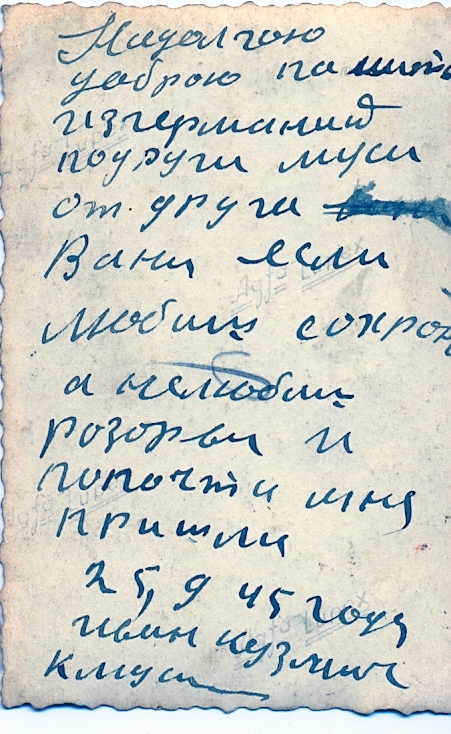 Надолгою
удоброю память
изгермании
подруги муси
от. друга
Вани если
любиш сохрон
а нелюбиш
розорви и
попочти мня
пришли
25, 9 45 года
иван кузмич
кмуси
Agfa Lupex